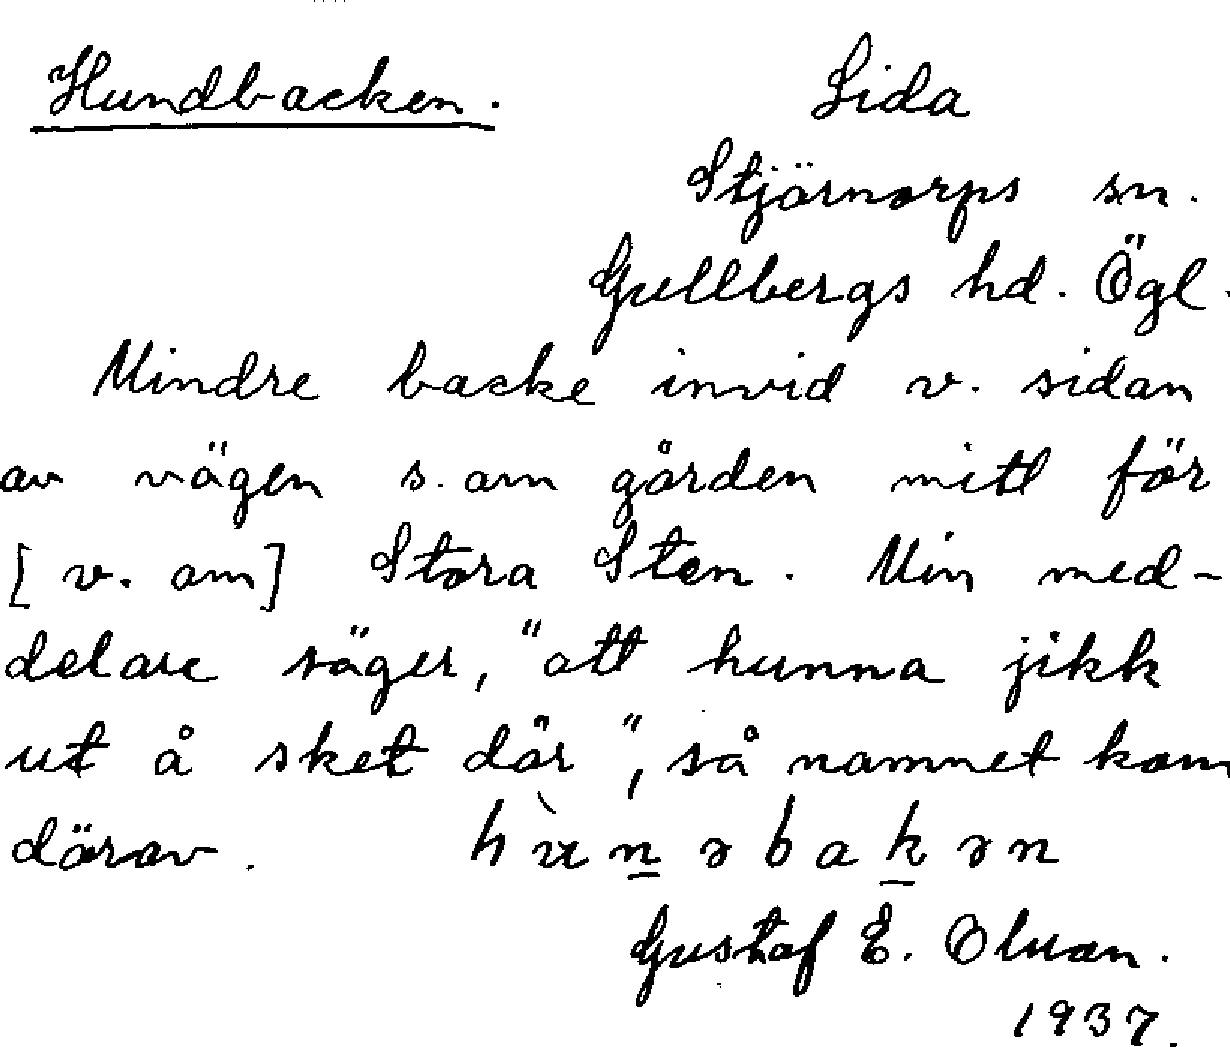 Hundbacken. Lida
Stjärnorps sn.
Gullbergs hd. Ögl.
Mindre backe invid v. sidan
av vägen s. om gården mitt för
[v. om] Stora Sten. Min med-
delare säger, "att hunna jikk
ut å sket där", så namnet kom
därav. hùnəbakən
Gustaf E. Olson.
1937.